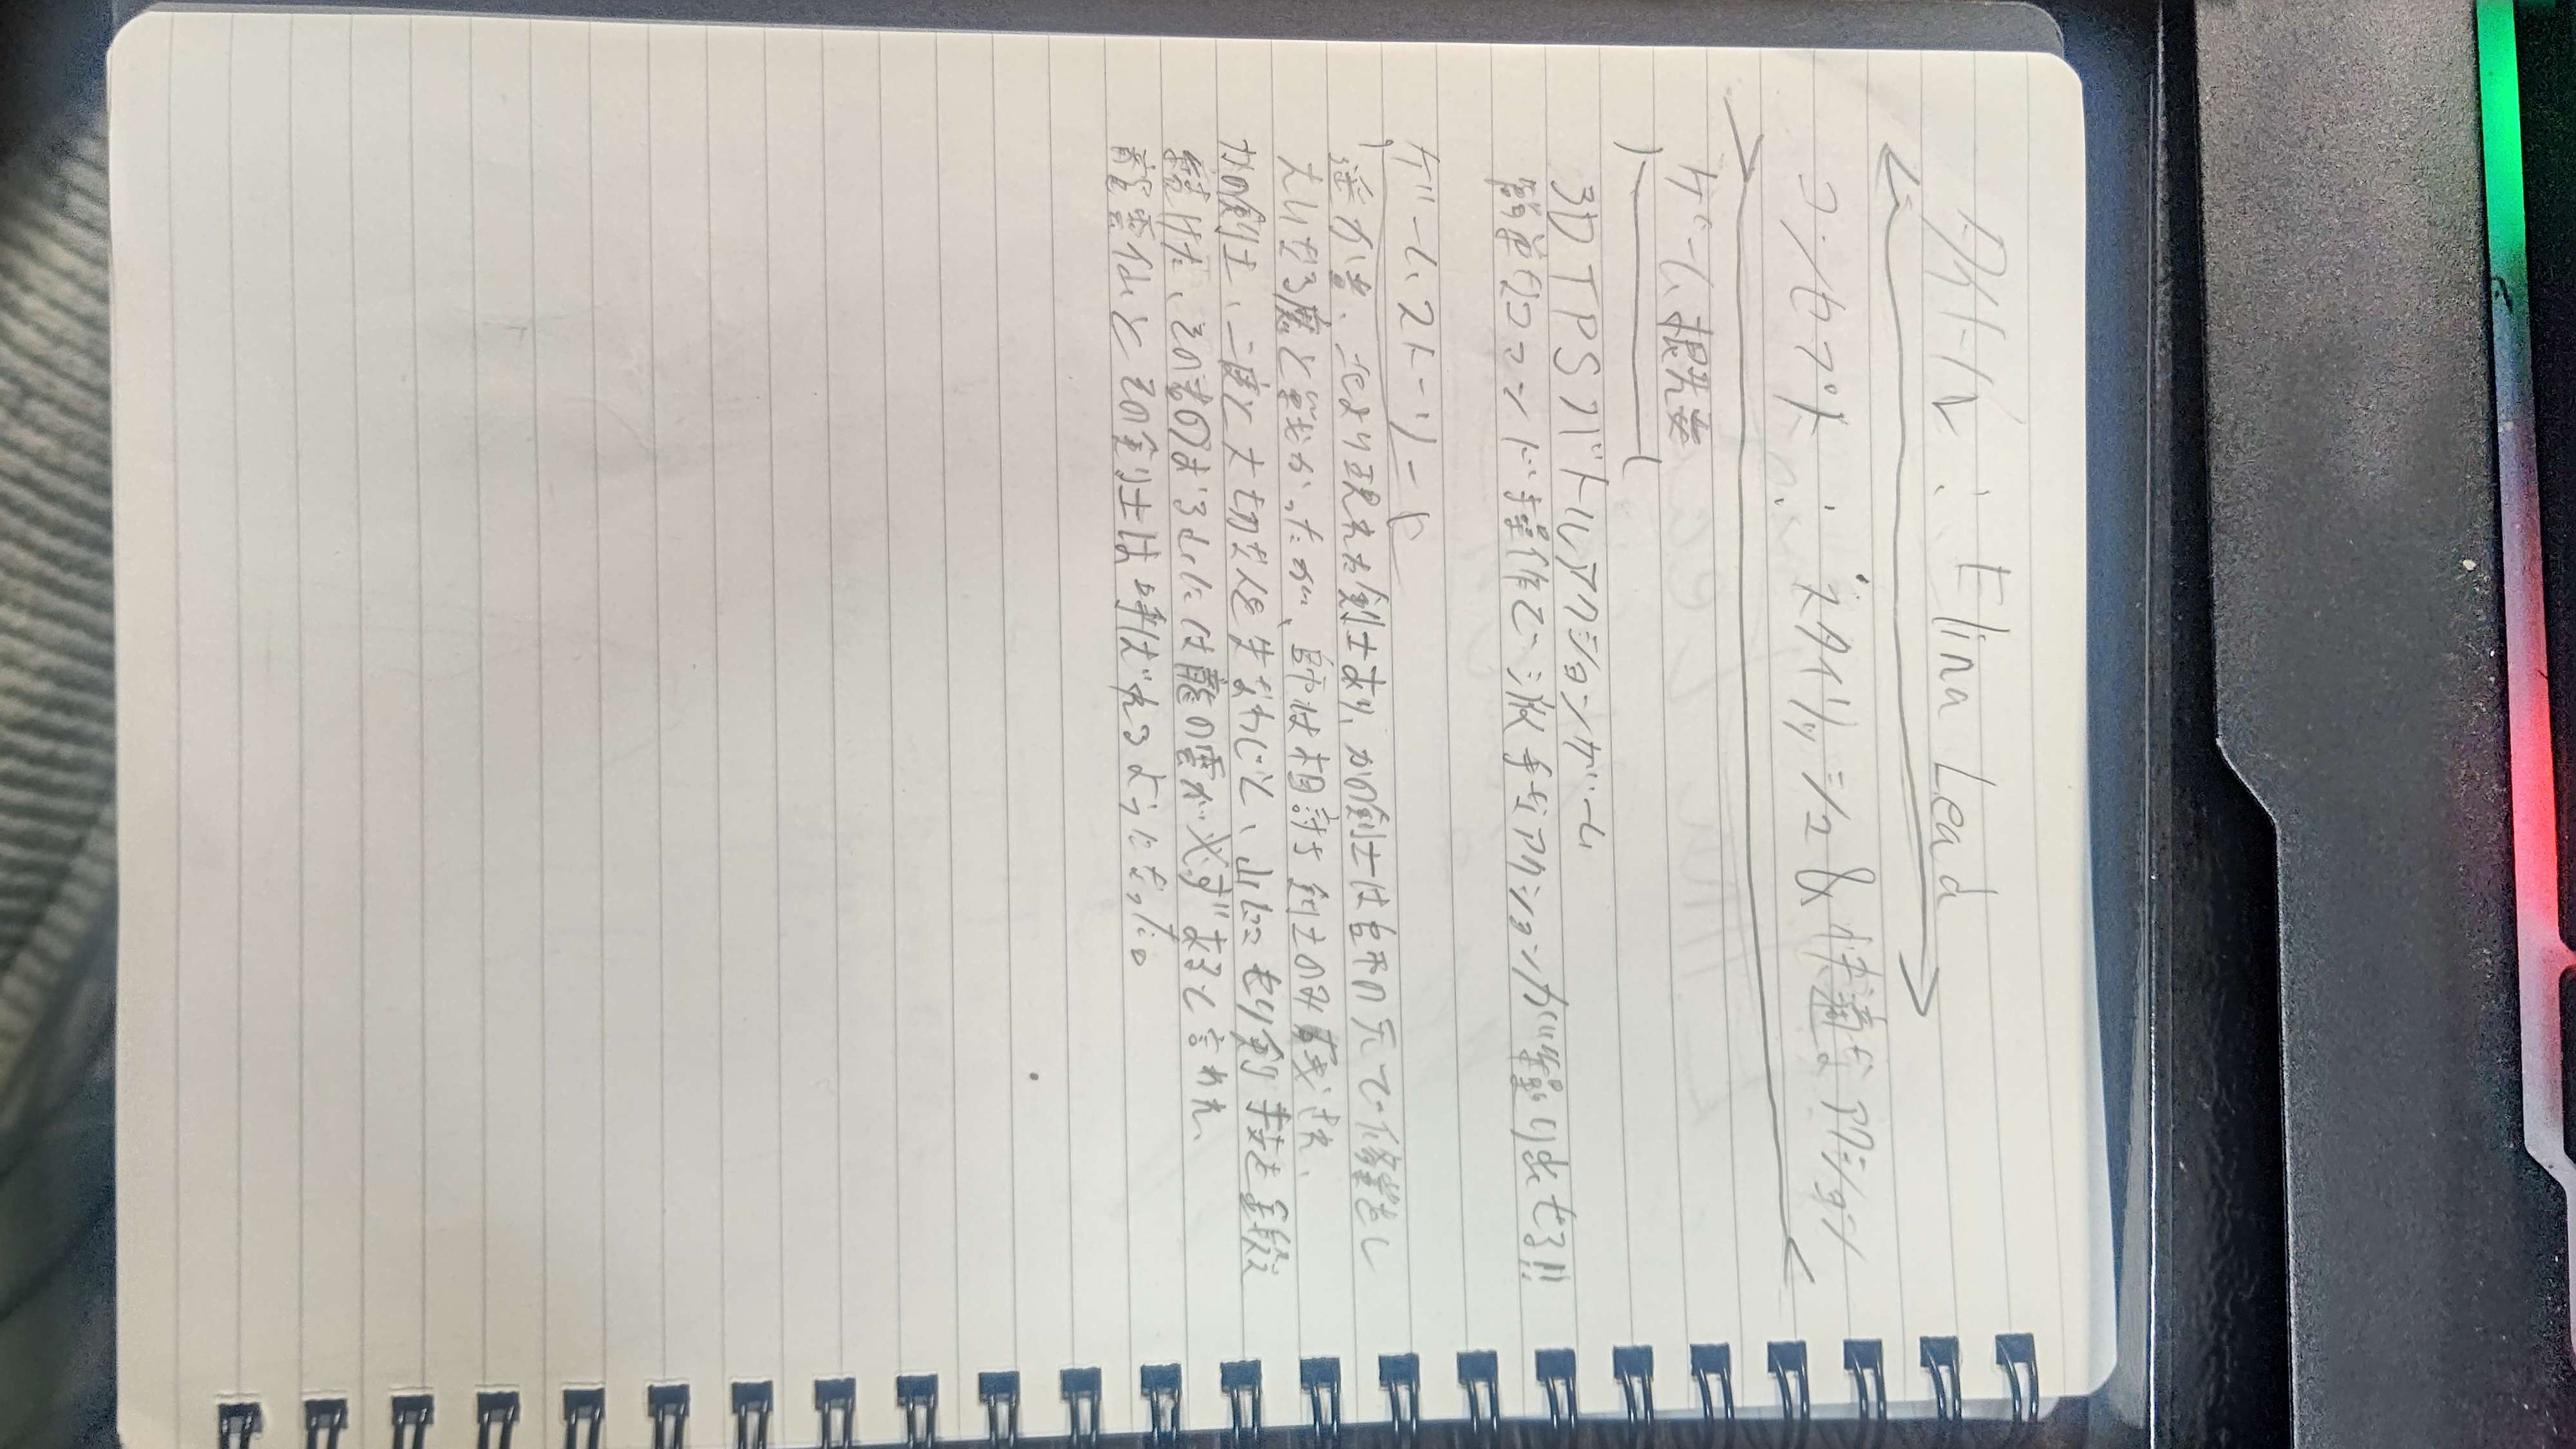 タイトル : Elina Lead
コンセプト : スタイリッシュ & 快適なアクション
ゲーム概要
3D TPSバトルアクションゲーム
簡単なコマンド操作で派手なアクションが繰り出せる!!
ゲームストーリー
遥か昔、北より現れた剣士あり、かの剣士は師の元で修業をし
大いなる魔と戦かったが、師は相討ち剣士のみ残され、
かの剣士、二度と大切な人を失なわじと、山にこもり剣技を鍛え
続けた、その者のおる山には龍の雲が必ずあると言われ、
龍雲仙とその剣士は呼ばれるようになった。